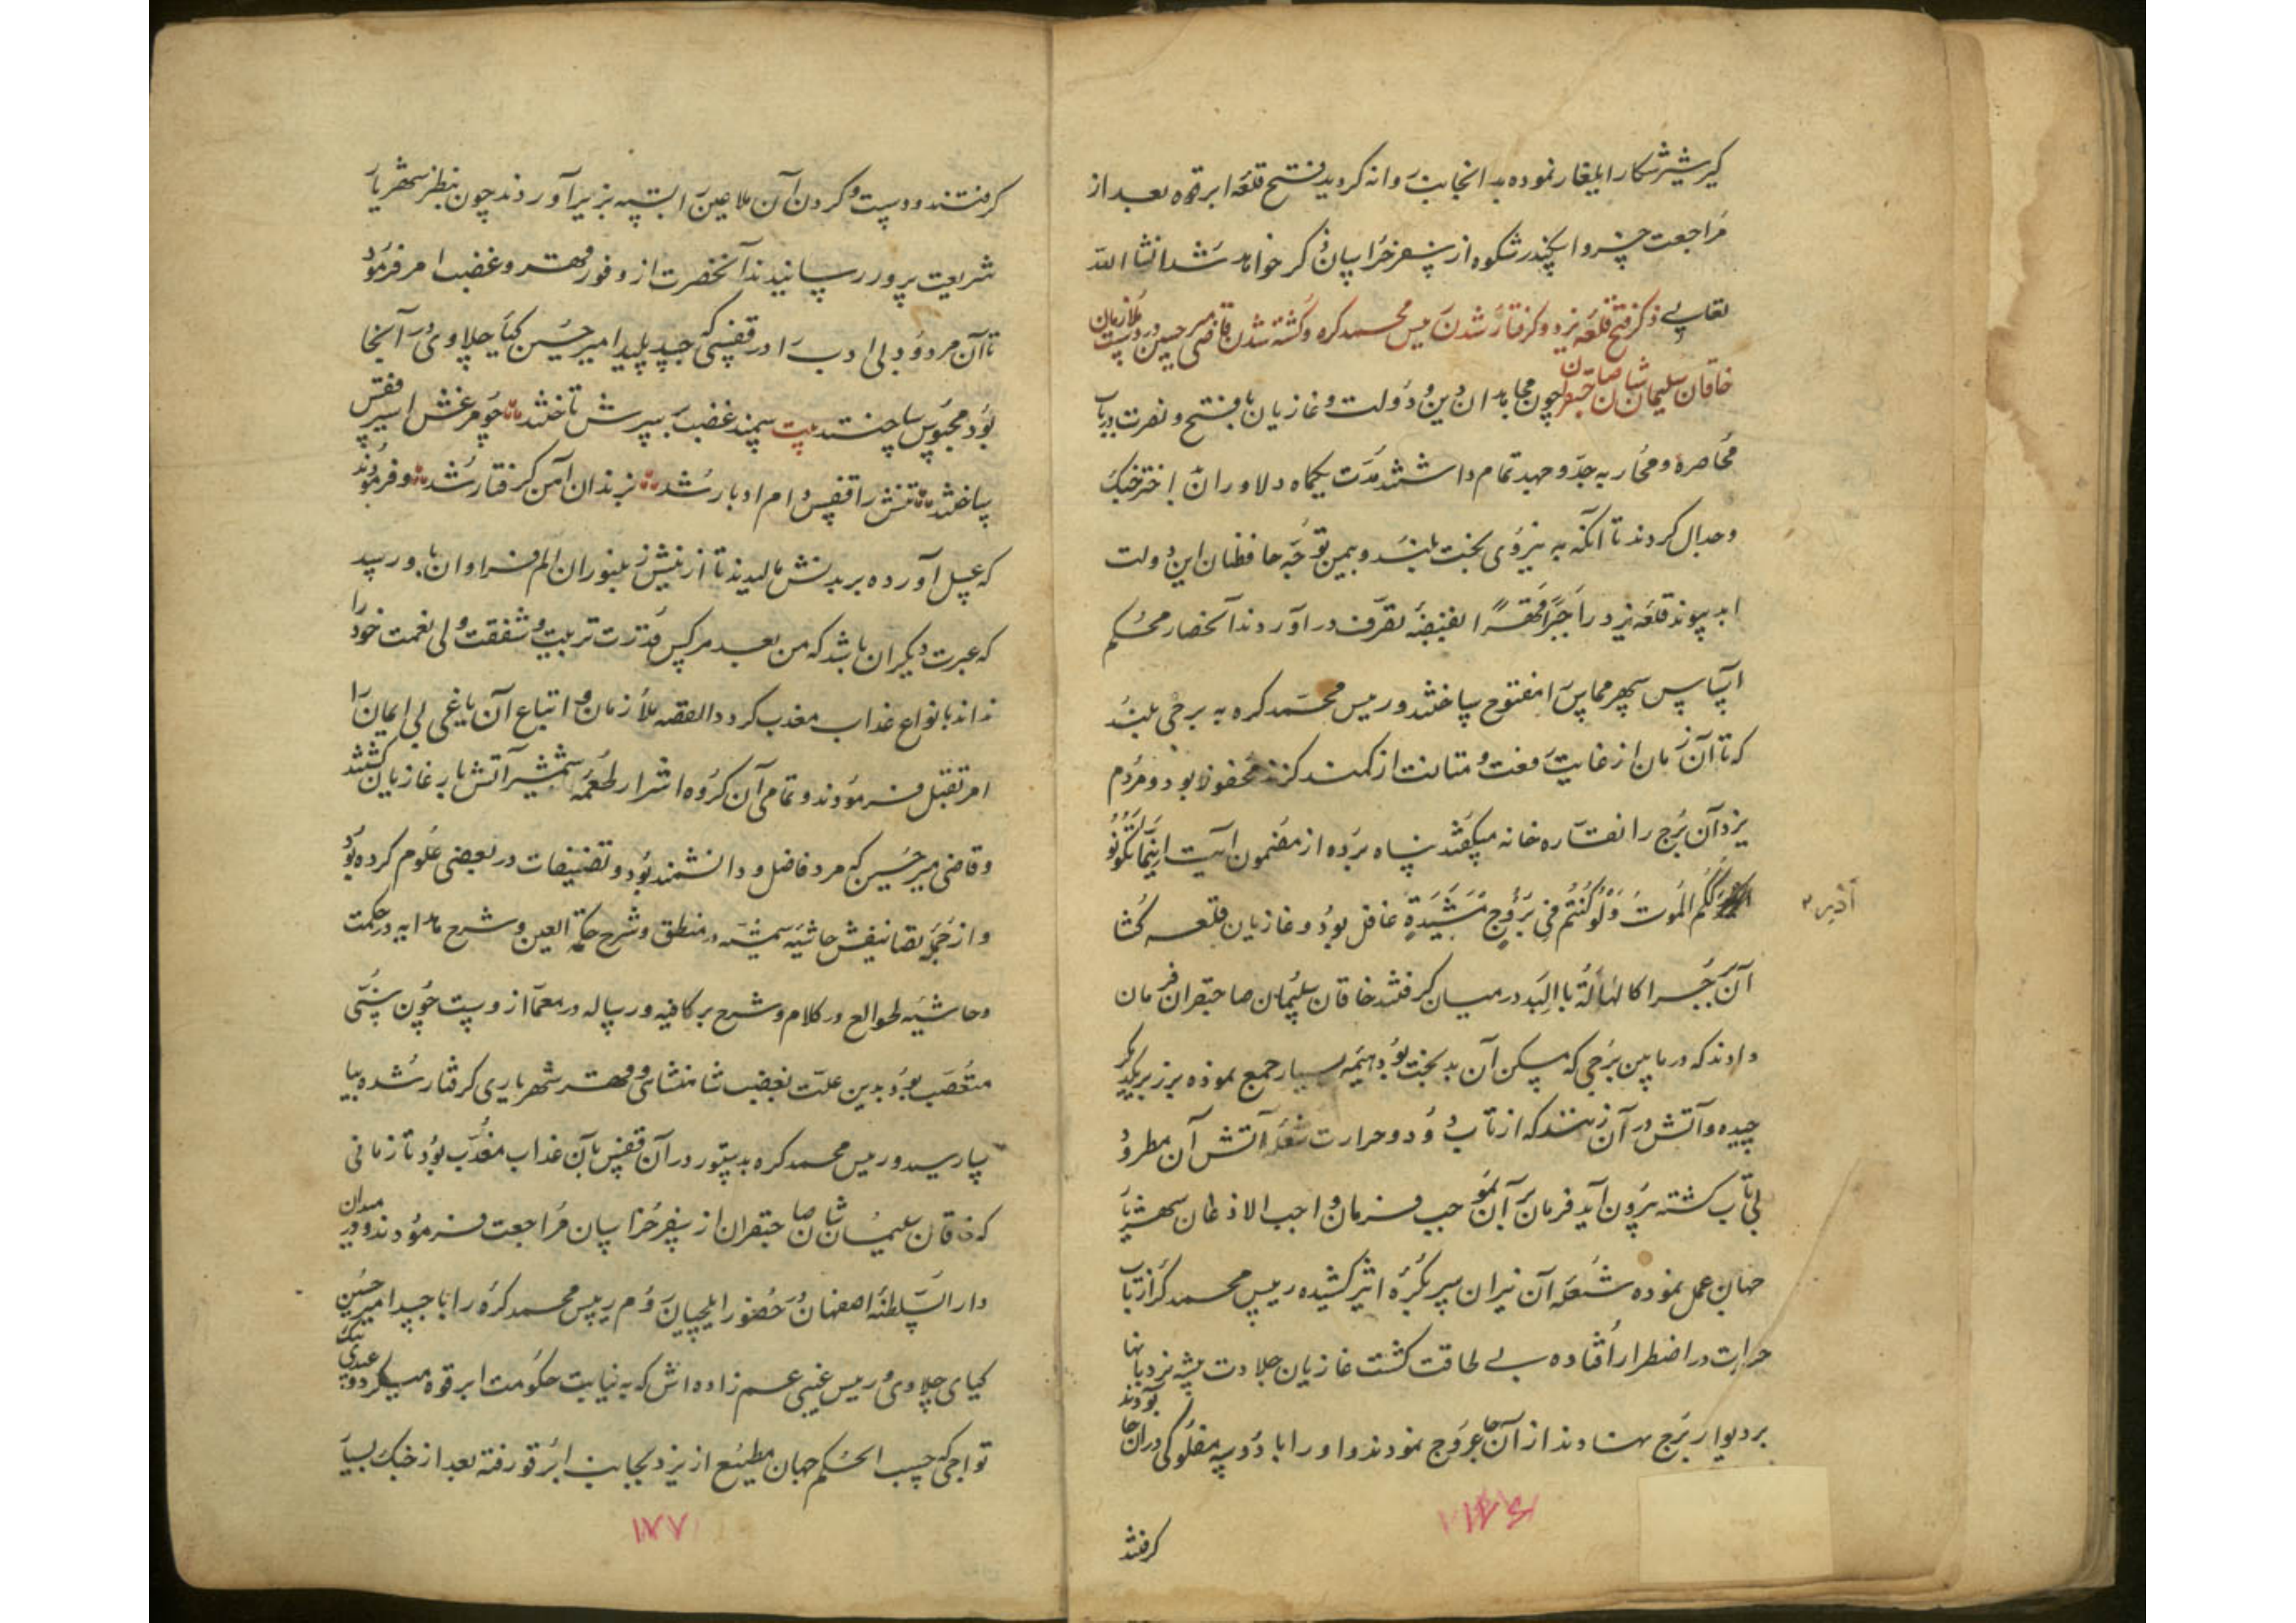 کیر شیر شکار ایلغار نموده بدانجانب روانه کردید فتح قلعه ابرقوه بعد از
مراجعت خسرو اسکندر شکوه از سفر خراسان ذکر خواهد شد انشا الله
تعالی ذکر فتح قلعه یزد و کرفتار شدن رئیس محمد کره و کشته شدن قاضی میر حسین در دست ملازمان
خاقان سلیمان شان صاحبقران چون مجاهدان دین و دولت و غازیان با فتح و نصرت در باب
محاصره و محاربه جد و جهد تمام داشتند مدت یکماه دلاوران اختر جنک
و جدال کردند تا آنکه به نیروی بخت بلند و بیمن توجه حافظان این دولت
ابد پیوند قلعه یزد را جبرا قهرا بقبضه تصرف در آوردند آنحصار محکم
اساس سپهر مماس را مفتوح ساختند و رئیس محمد کره به برجی بلند
که تا آن زمان از غایت رفعت و متانت از کمند کزند محفوظ بود و مردم
یزد آن برج را نقاره خانه میکفتند پناه برده از مضمون آیت اینما تکونوا
یدرککم الموت ولو کنتم فی بروج مشیدة غافل بود و غازیان قلعه کشا
آن برج را کالهالة بالبدر در میان کرفتند خاقان سلیمان صاحبقران فرمان
دادند که در پایین برجی که مسکن آن بدبخت بود هیمه بسیار جمع نموده بر زبر یکدیکر
چیده و آتش در آن زنند که از تاب دود و حرارت شعله آتش آن مطرود
بی تاب کشته بیرون آید فرمان بران بموجب فرمان واجب الاذعان شهریار
جهان عمل نموده شعله آن نیران سر بکره اثیر کشیده رییس محمد کره از تاب
حرارت در اضطرار افتاده بی طاقت کشت غازیان جلادت پیشه نردبانها
بر دیوار برج نهادند از آنجا عروج نمودند و او را با دو سه مفلوکی در آن جا بودند
کرفتند
آذیر ۳
۱۷۶
کرفتند و دست و کردن آن ملاعین را بسته بزیر آوردند چون بنظر شهریار
شریعت پرور رسانیدند آنحضرت از وفور قهر و غضب امر فرمود
تا آن مردود بی ادب را در قفسی که جسد پلید امیر حسین کیای چلاوی در آنجا
بود محبوس ساختند بیت سمند غضب بر سرش تاختند چو مرغش اسیر قفس
ساختند تنش را قفس دام ادبار شد بزندان آهن کرفتار شد و فرمودند
که عسل آورده بر بدنش مالیدند تا از نیش زنبوران الم فراوان باو رسید
که عبرت دیکران باشد که من بعد هر کس قدرت تربیت و شفقت ولی نعمت خود را
نداند بانواع عذاب معذب کردد القصه ملازمان و اتباع آن یاغی بی ایمان را
امر بقتل فرمودند و تمامی آن کروه اشرار طعمه شمشیر آتش بار غازیان کشتند
و قاضی میر حسین که مرد فاضل و دانشمند بود و تصنیفات در بعضی علوم کرده بود
و از جمله تصانیفش حاشیه شمسیه در منطق و شرح حکمة العین و شرح هدایه در حکمت
و حاشیه طوالع در کلام و شرح بر کافیه و رساله در معما از وست چون سنی
متعصب بود بدین علت بغضب شاهنشاهی و قهر شهریاری کرفتار شده بیا
سا رسید و رییس محمد کره بدستور در آن قفس بآن عذاب معذب بود تا زمانی
که خاقان سلیمان شان صاحبقران از سفر خراسان مراجعت فرمودند و در میدان
دار السلطنه اصفهان در حضور ایلچیان روم رییس محمد کره را با جسد امیر حسین
کیای چلاوی و رییس غیبی عم زاده اش که به نیابت حکومت ابرقوه میکرد و عبدی بیک
تواجی که حسب الحکم جهان مطیع از یزد بجانب ابرقو رفته بعد از جنک بسیار
۱۷۷